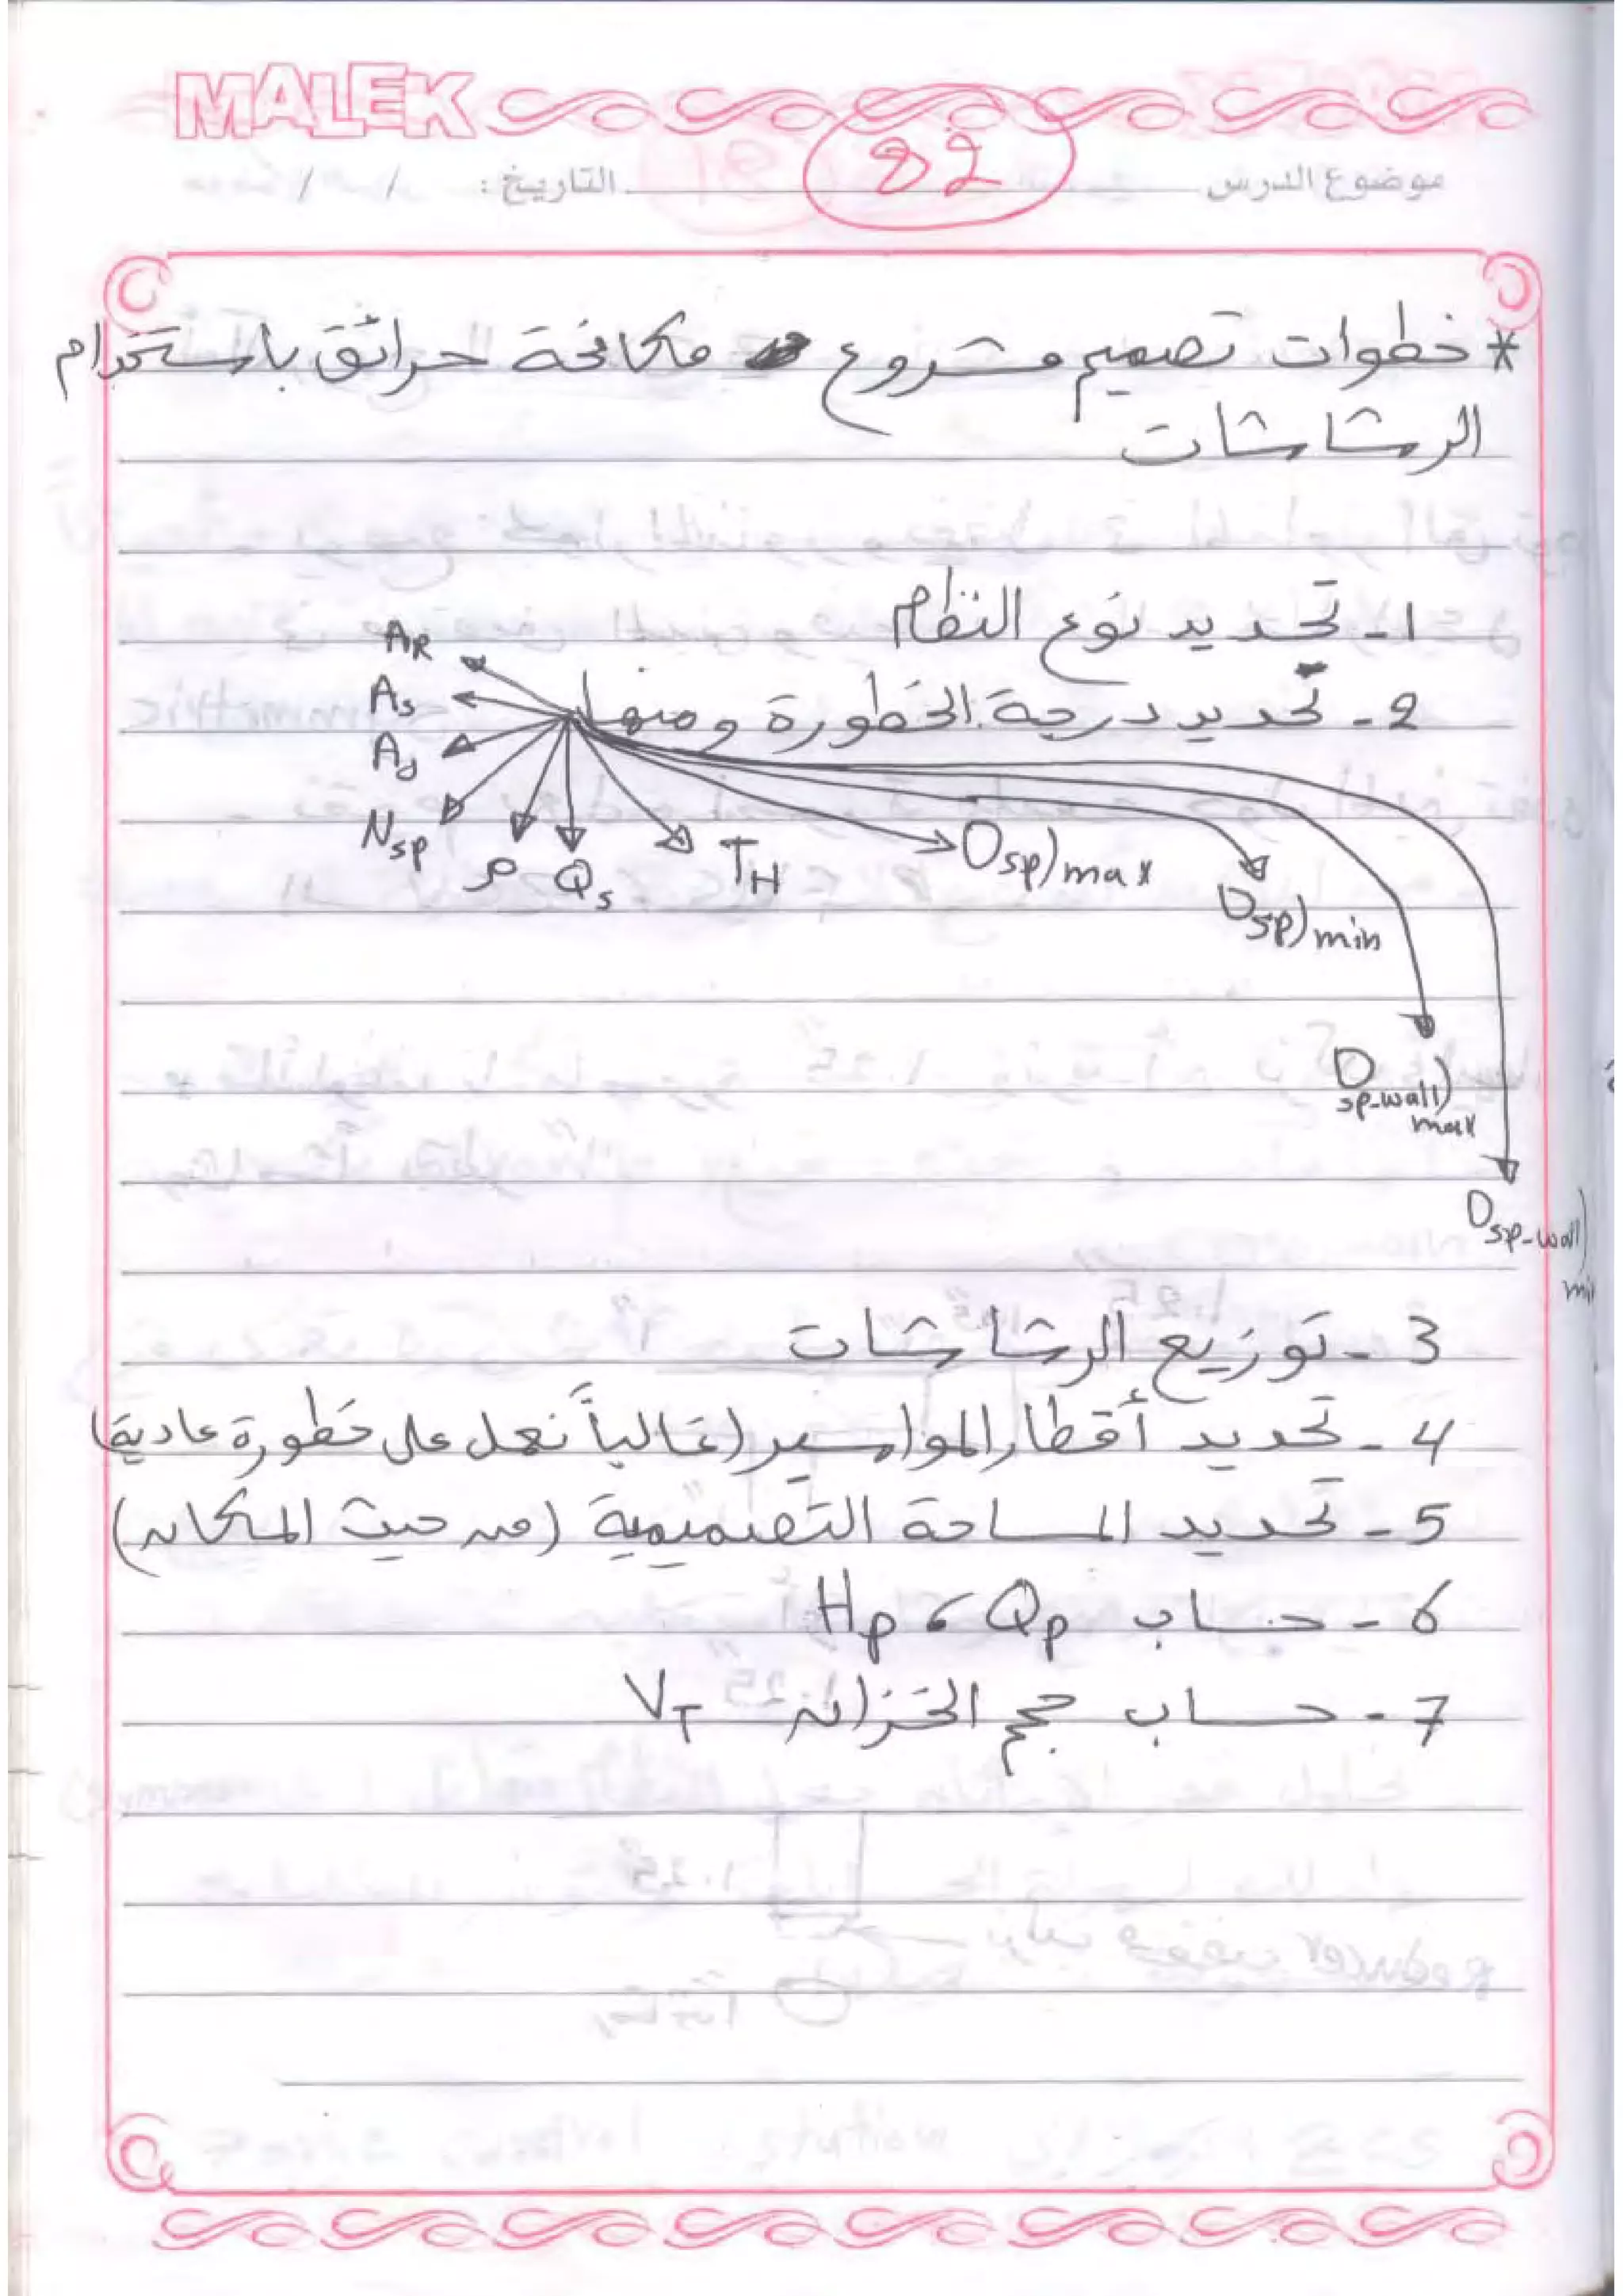 MALEK
موضوع الدرس 82 التاريخ: / /
* خطوات تصميم مشروع مكافحة حرائق باستخدام
الرشاشات
1- تحديد نوع النظام
2- تحديد درجة الخطورة ومنها
AR
As
Ad
Nsp
ρ
Qs
TH
Dsp)max
Dsp)min
Dsp-wall)max
Dsp-wall)min
3- توزيع الرشاشات
4- تحديد أقطار المواسير (غالباً نعمل على خطورة عادية)
5- تحديد المساحة التصميمية (من حيث المكان)
6- حساب Qp ، Hp
7- حساب حجم الخزان VT